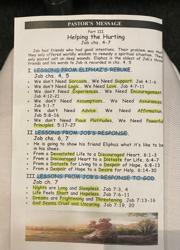 PASTOR'S MESSAGE
Part III
Helping the Hurting
Job chs. 4-7
Job had friends who had good intentions. Their problem was that
they only offered worldly wisdom to remedy a spiritual situation. They
only poured salt on deep wounds. Eliphaz is the oldest of Job's three
friends and his words to Job is recorded in chs. 4, 5
I. LESSONS FROM ELIPHAZ'S REBUKE
Job chs. 4, 5
We don't Need Sarcasm.. We Need Support Job 4:1-6
We don't Need Logic.. We Need Love Job 4:7-11
We don't Need Experiences.. We Need Encouragement
Job 4:12-21
We don't Need Assumptions.. We Need Assurances
Job 5:1-7
We don't Need Advice.. We Need Affirmation
Job 5:8-16
We don't Need Pious Platitudes.. We Need Powerful
Principles 5:17-27
II. LESSONS FROM JOB'S RESPONSE
Job chs. 6, 7
He is going to show his friend Eliphaz what it's like to be
in his shoes
From a Devastated Life to a Discouraged Heart 6:1-3
From a Discouraged Heart to a Distaste for Life 6:4-7
From a Distaste for Living to a Despair of Hope 6:8-13
From a Despair of Hope to a Desire for Help 6:14-30
III. LESSONS FROM JOB'S RESPONSE TO GOD
Job ch. 7
Nights are Long and Sleepless Job 7:3, 4
Life Feels Short and Hopeless Job 7:6-11
Dreams are Frightening and Threatening Job 7:13-16
God Seems Cruel and Uncaring Job 7:19, 20